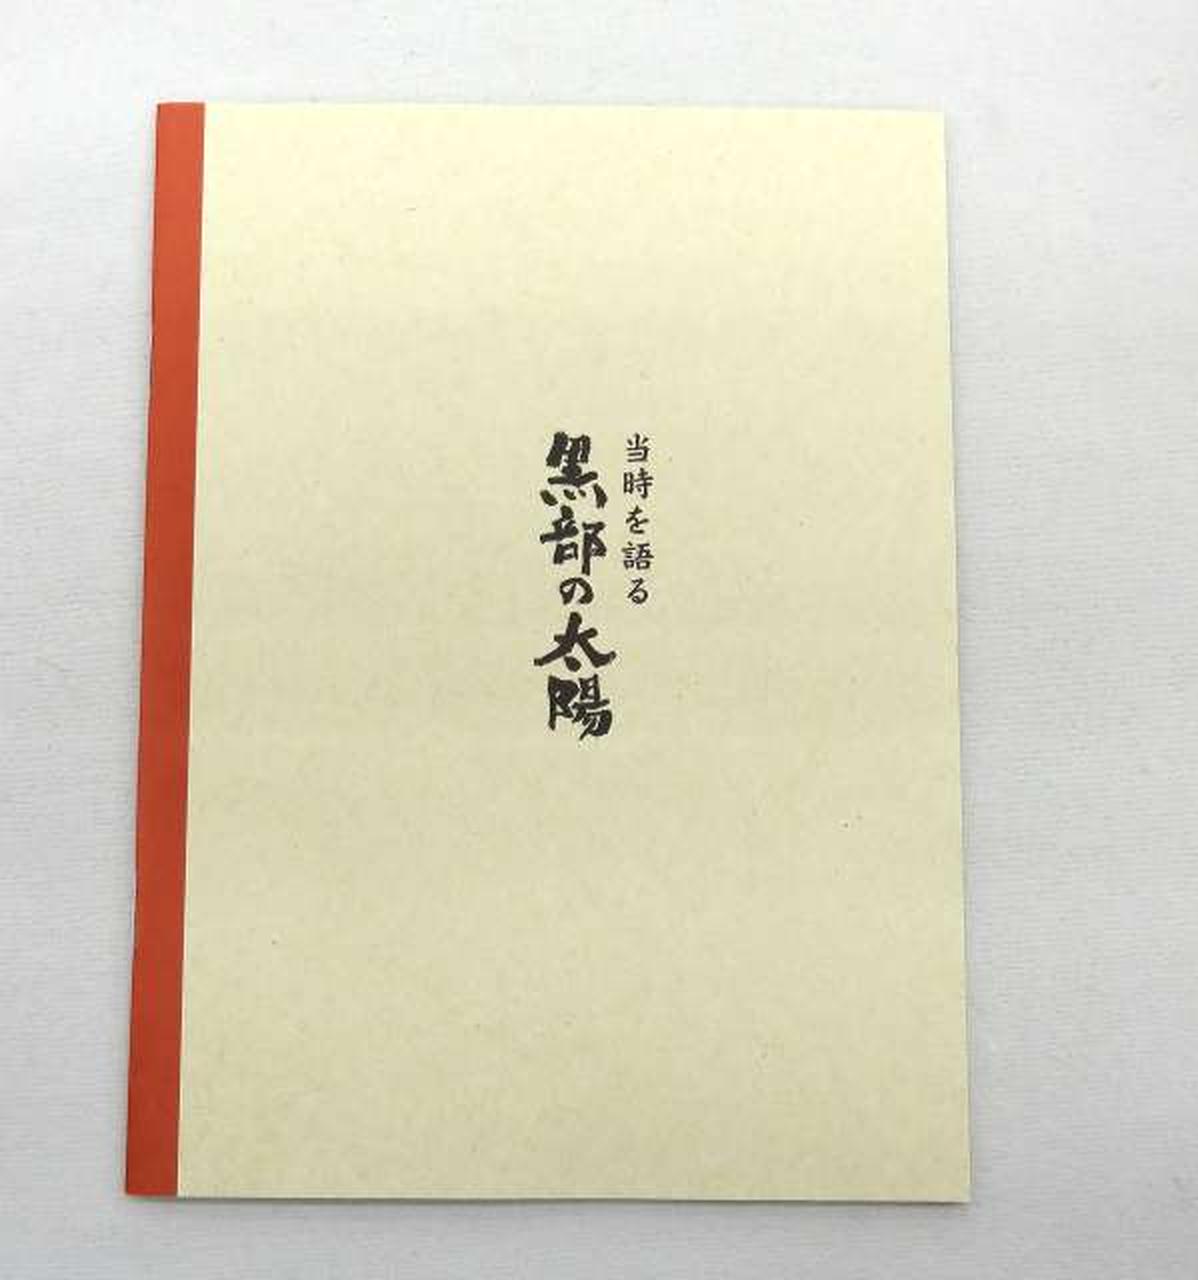 当時を語る
黒部の太陽